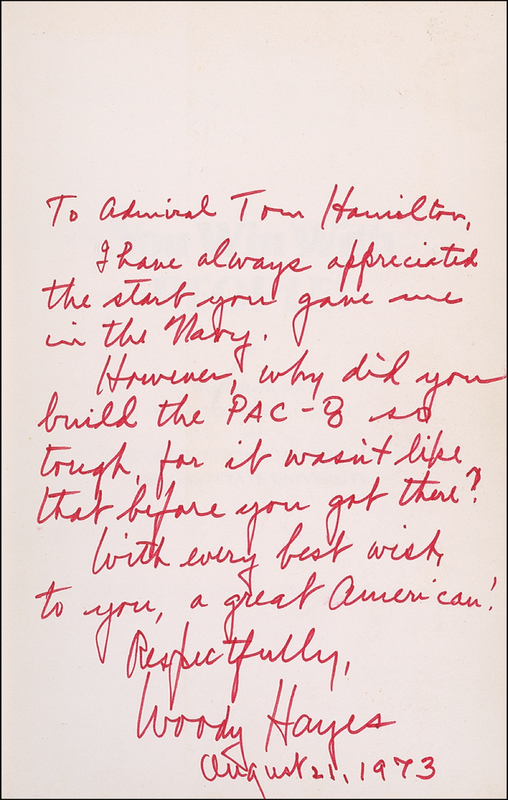 To Admiral Tom Hamilton,
I have always appreciated
the start you gave me
in the Navy.
However, why did you
build the PAC-8 so
tough, for it wasn't like
that before you got there?
With every best wish,
to you, a great American!
Respectfully,
Woody Hayes
August 21, 1973